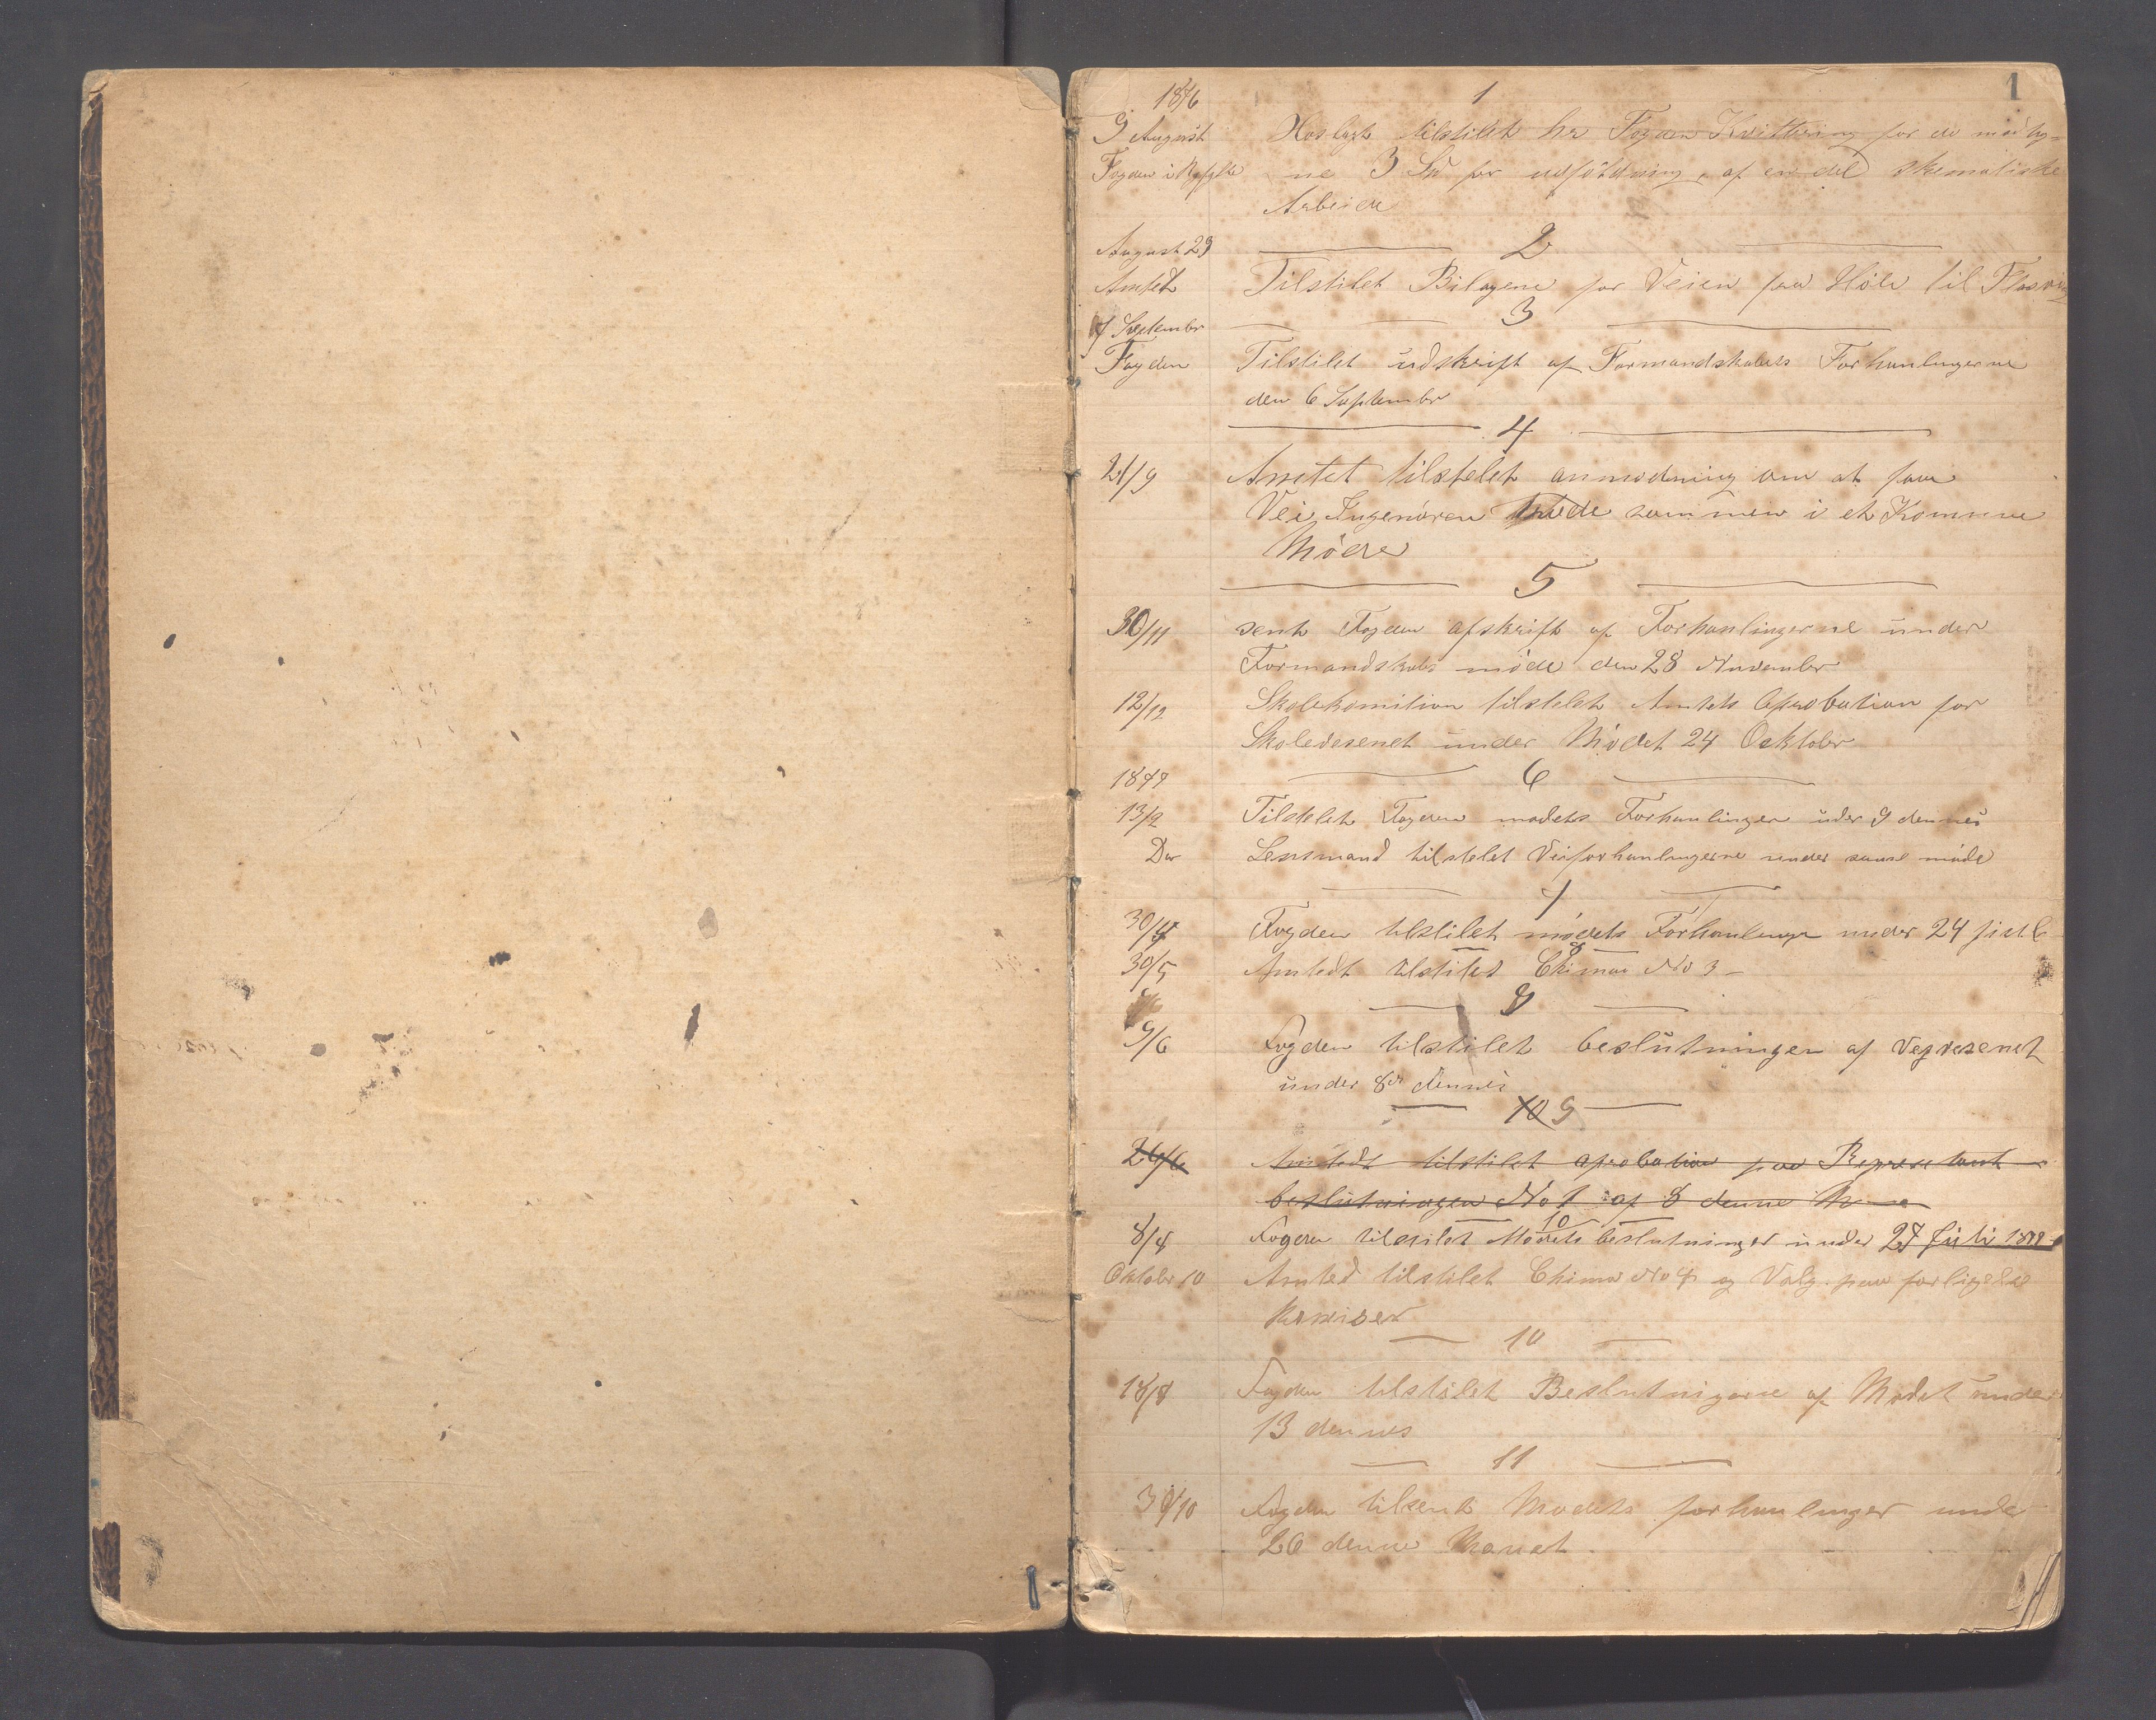 1
1876
1
9 August Hoslagt tilstilet hr Fogden Kvittering for de modtag-
Fogden i ne 3 Sk for udföldning, af en del skematiske
Arbeide
August 29
2
Amtet Tilstilet Bilagene for Veien fra Høle til
7 September
3
Fogden Tilstilet udskrift af Formandskabets Forhanlingerne
den 6 September
4
21/9 Amtet tilstelet anmodning om at faa
Vei Ingeniören sammen i et Kommune
Möde
5
30/11 sent Fogden afskrift af Forhanlingerne under
Formandskabs möde den 28 November
12/12 Skolekomition tilstelet Amtets Aprobation for
Skolevesenet under Mødet 24 Ocktober
1877
6
13/2 Tilstelet Fogden mødets Forhanlinger uder 9 dennes
Do Lensmand tilstelet Veiforhanlingerne under samme møde
7
30/4 Fogden tilstilet mödets Forhanlinger under 24
8
30/5 Amtedt tilstilet No 3
9
9/6 Fogden tilstilet beslutningen af
under 8de dennes
10 9
26/6 Amtedt tilstilet aprobation paa Represetant
beslutningen No 1 af 8 denne
10
Fogden tilstilet Mödets beslutninger under 27 Juli 1877
Oktober 10 Amted tilstilet og Valg paa forligelse

10
18/8 Fogden tilstilet Beslutnigerne af Mødet under
13 dennes
11
30/10 Fogden tilsent Mødets forhanlinger under
26 denne Manet